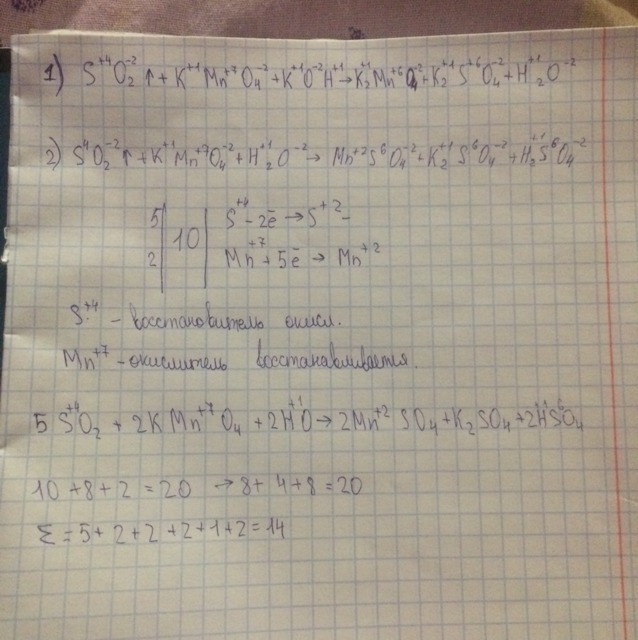 1) S⁺⁴O₂⁻²↑ + K⁺¹Mn⁺⁷O₄⁻² + K⁺¹O⁻²H⁺¹ → K₂⁺¹Mn⁺⁶O₄⁻² + K₂⁺¹S⁺⁶O₄⁻² + H₂⁺¹O⁻²
2) S⁴O₂⁻²↑ + K⁺¹Mn⁺⁷O₄⁻² + H₂⁺¹O⁻² → Mn⁺²S⁶O₄⁻² + K₂⁺¹S⁶O₄⁻² + H₂⁺¹S⁶O₄⁻²
5 | 10 | S⁺⁴ - 2ē → S⁺² -
2 | | Mn⁺⁷ + 5ē → Mn⁺²
S⁺⁴ - восстановитель окисл.
Mn⁺⁷ - окислитель восстанавливается.
5S⁺⁴O₂ + 2KMn⁺⁷O₄ + 2H⁺¹O → 2Mn⁺²SO₄ + K₂SO₄ + 2H⁺¹S⁶O₄
10 + 8 + 2 = 20 → 8 + 4 + 8 = 20
Σ = 5 + 2 + 2 + 2 + 1 + 2 = 14